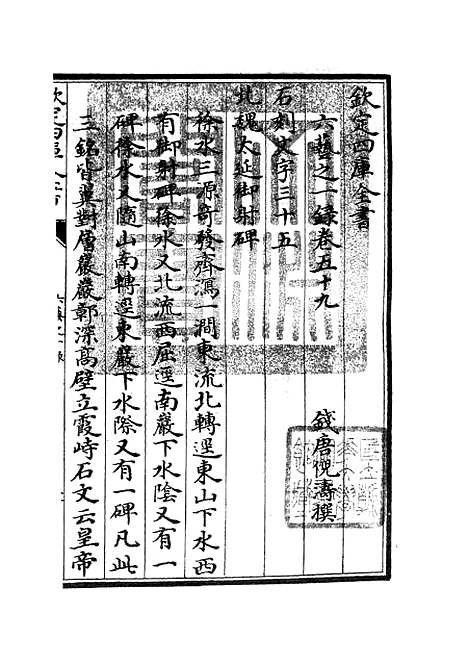 欽定四庫全書
六藝之一録卷五十九
錢唐倪濤撰
石刻文字三十五
北魏大延御射碑
徐水三源奇發齊瀉一澗東流北轉逕東山下水西
有御射碑徐水又北流西屈逕南巖下水隂又有一
碑徐水又隨山南轉逕東巖下水際又有一碑凡此
三銘皆翼對層巖巖鄣深高壁立霞峙石文云皇帝